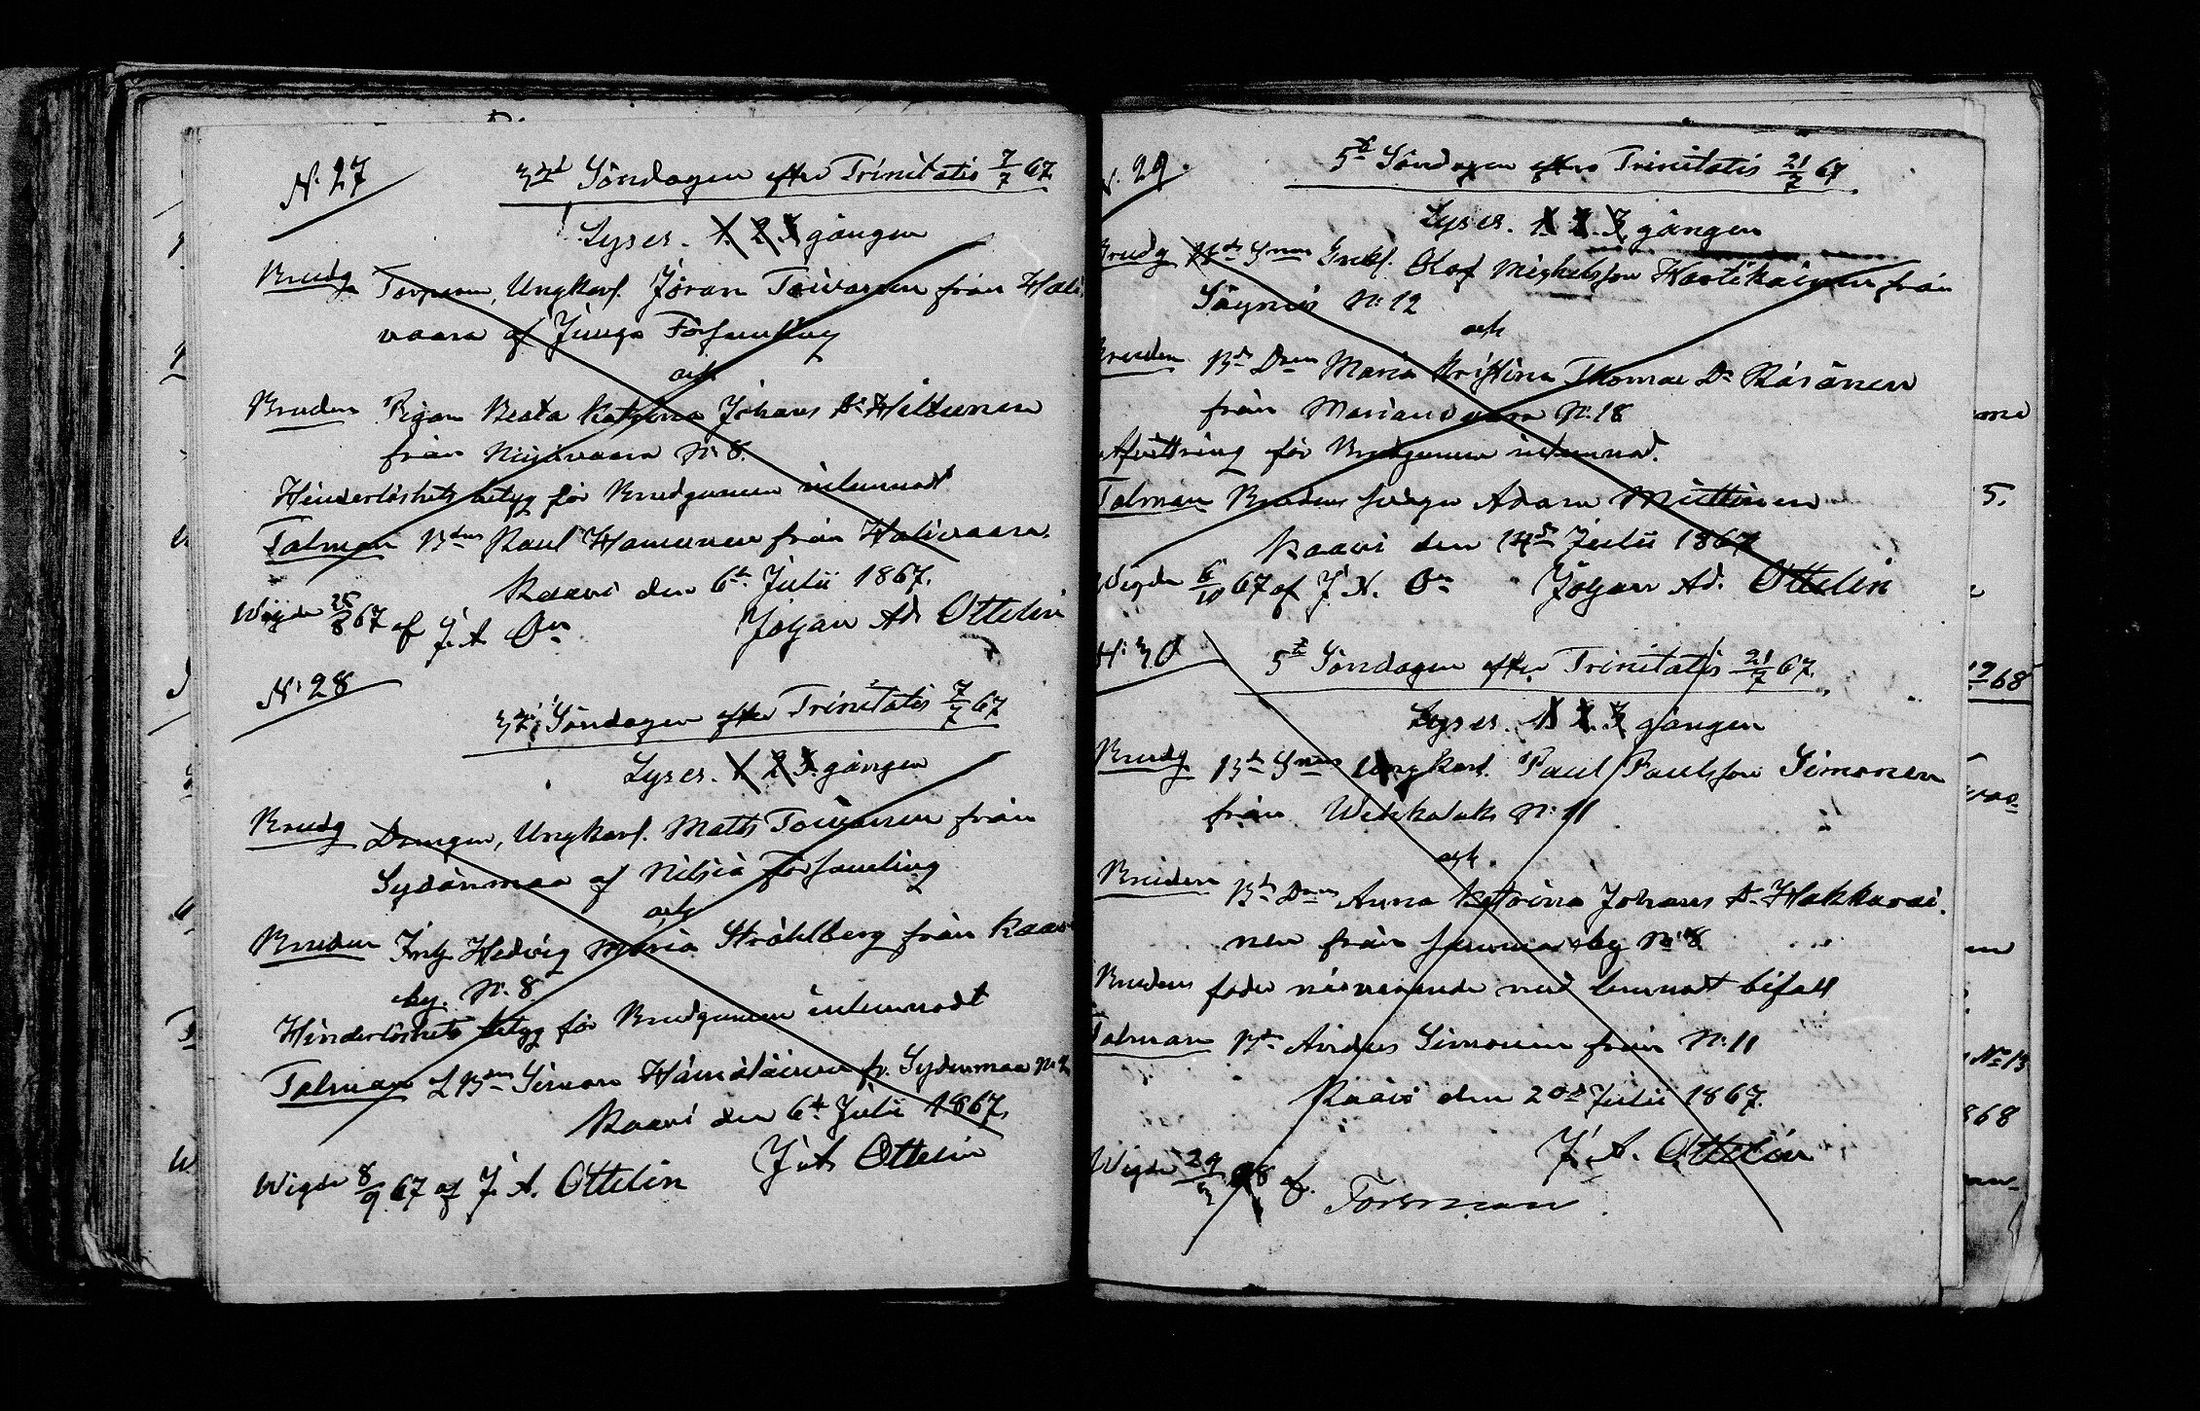 N: 27
3die Söndagen efter Trinitatis 7/7 67
Lyses. 1. 2 3 gången
Brudg Torparen, Ungkarl. Jöran Toivanen från Hali
vaara af Juuga Församling
och
Bruden Pigan Beata Katrina Johans Dr Hiltunen
från Niinivaara N: 8.
Hinderlöshets betyg för Brudgumen inlemnadt
Talman Bdns Paul Hamunen från Halivaara.
Kaavi den 6te Julii 1867.
Wigde 25/8 67 af J. A On
Johan Ad. Ottelin
N: 28
3die Söndagen efter Trinitatis 7/7 67
Lyses. 1 2 3. gången
Brudg Drängen, Ungkarl. Matts Toivanen från
Sydänmaa af Nilsiä Församling
och
Bruden Inh. Hedvig Maria Stråhlberg från Kaavi
by. N. 8
Hinderlöshets betyg för Brudgumen inlemnadt
Talman Simon Hämäläinen fr. Sydenmaa N:
Kaavi den 6te Julii 1867.
J. A. Ottelin
Wigde 8/9 67 af J. A. Ottelin
N. 29.
5te Söndagen efter Trinitatis 21/7 67
Lyses. 1. 2. 3. gången
Brudg Bds Snen Enkl. Olof Michelsson Hartikainen från
Säynis N: 12
och
Bruden Bds Dren Maria Kristina Thomas Dr Räsänen
från Mariansvaara N: 18
Afvittring för Brudgumen inlemnad.
Talman Brudens svåger Adam Miettinen
Kaavi den 14de Julii 1867
Wigde 6/10 67 af J. A. On Johan Ad. Ottelin
N: 30
5te Söndagen efter Trinitatis 21/7 67.
Lyses. 1. 2. 3 gången
Brudg Bds Snen Ungkarl. Paul Paulsson Simonen
från Wehkalaks N: 11
och
Bruden Bds Dren Anna Katrina Johans Dr Hakkarai.
nen från by N: 8
Brudens fader närvarande med lemnadt bifall
Talman Bds Anders Simonen från N: 11
Kaavi den 20de Julii 1867.
J. A. Ottelin
Wigde 29/3 68 af. Forsman
5.
68
No 13
868